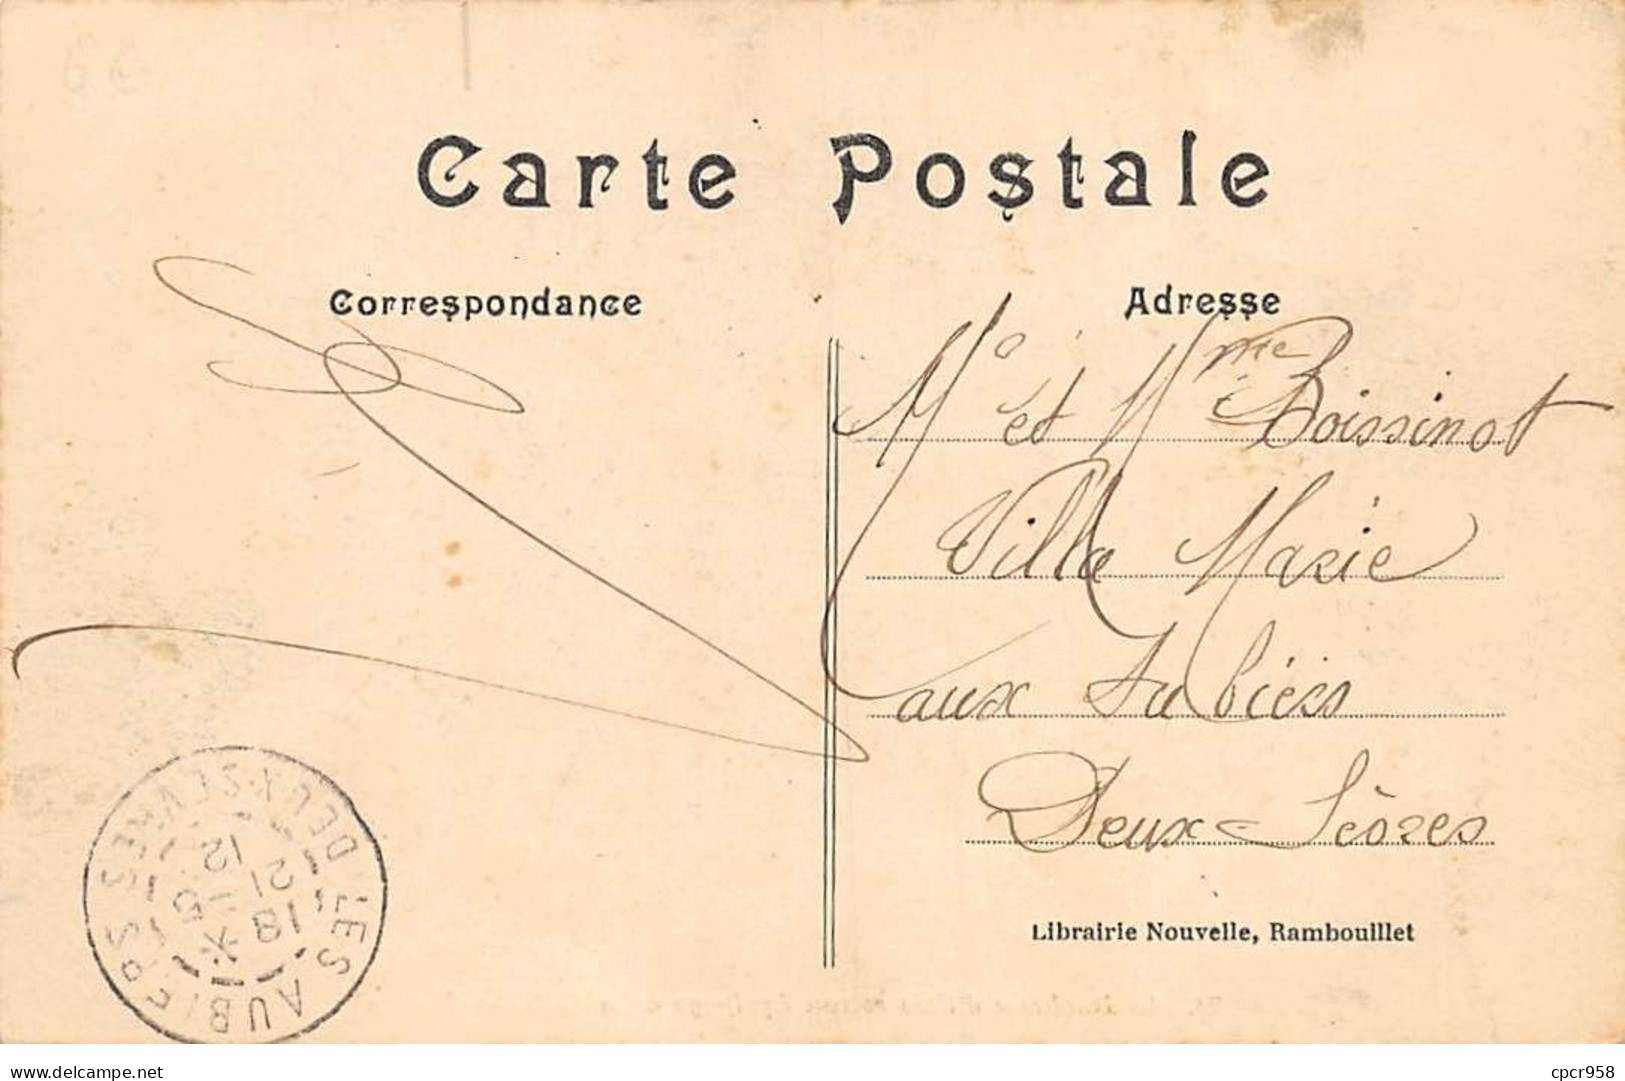 Carte Postale
Correspondance
Adresse
Mr et Mme Boissinot
Villa Marie
aux Aubiers
Deux-Sèvres
Librairie Nouvelle, Rambouillet
LES AUBIERS
DEUX-SEVRES
delcampe.net
cpcr958